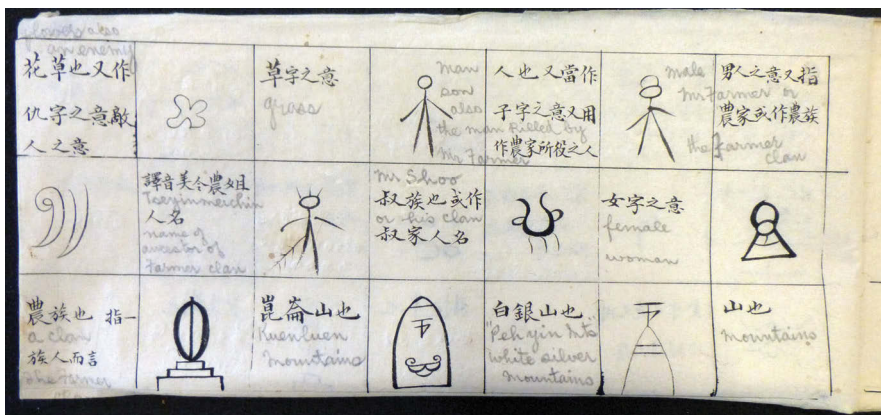 flowers also
an enemy
花草也又作
仇字之意敵
人之意
草字之意
grass
man
son
also
the man killed by
Mr Farmer
人也又當作
子字之意又用
作農家所役之人
male
Mr Farmer or
the farmer
clan
男人之意又指
農家或作農族
譯音美令農姐
人名
name of
ancestor of
Farmer clan
Mr Shoo
叔族也或作
or his clan
叔家人名
女字之意
female
woman
農族也 指一
a clan
族人而言
The Farmer
clan
崑崙山也
Kuenluen
Mountains
白銀山也
"Peh yin Mts
white silver
Mountains
山也
Mountains